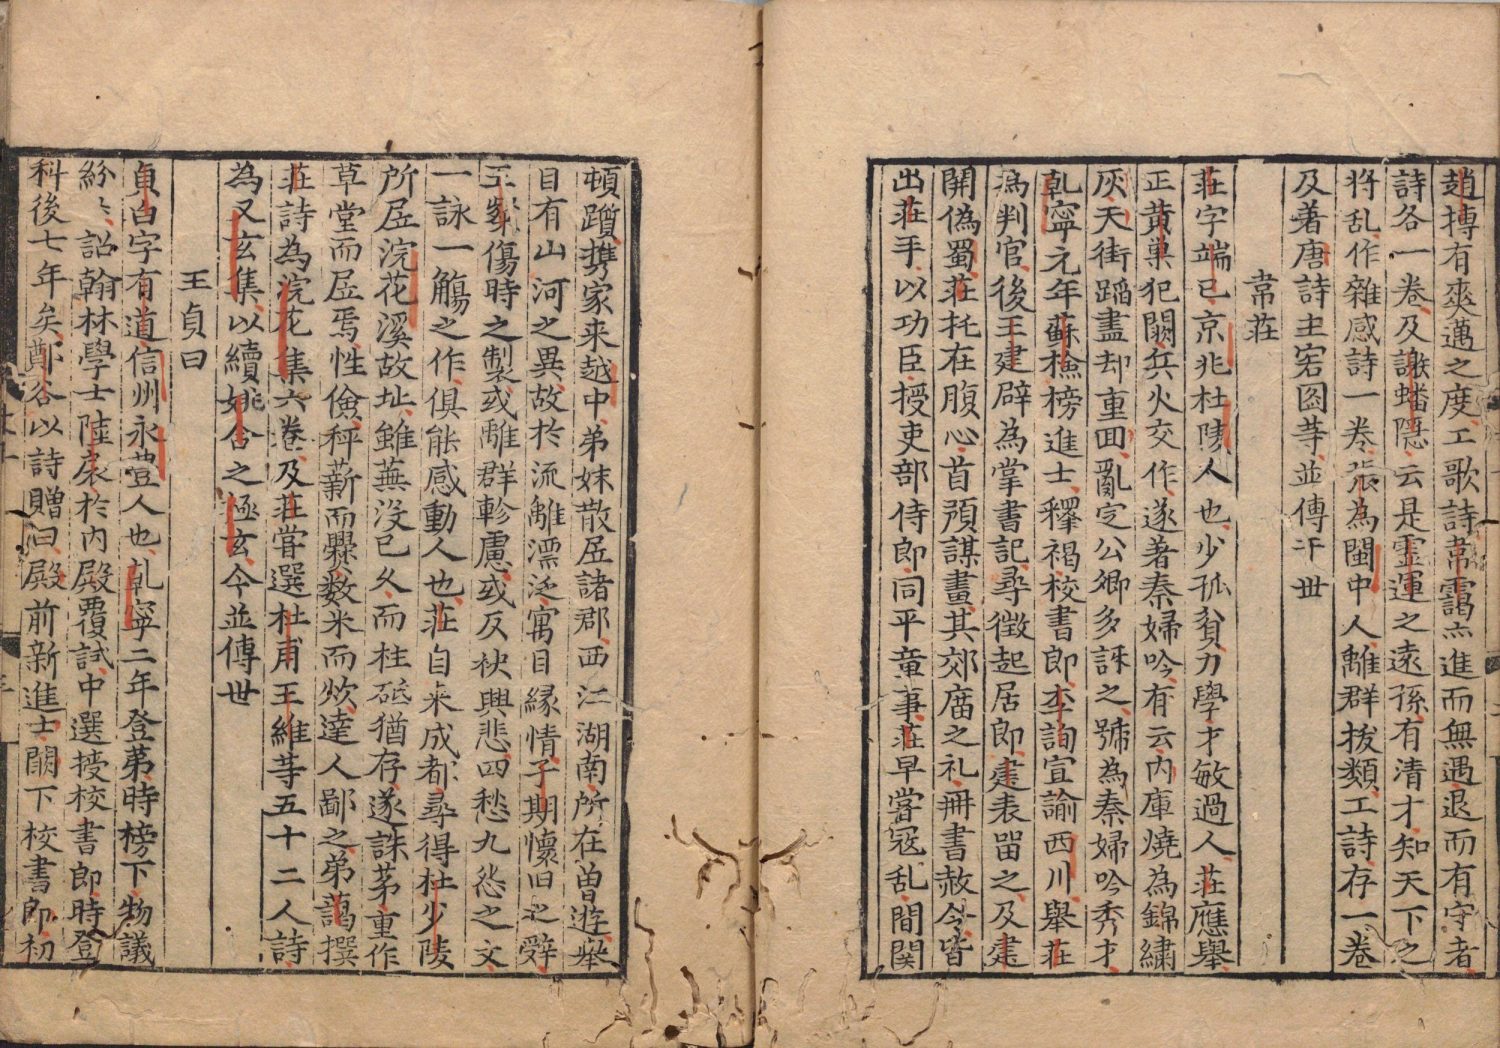 趙搏有爽邁之度工歌詩常靄亦進而無遇退而有守者
詩各一卷及謝蟠隱云是霊運之遠孫有清才知天下之
将乱作雜感詩一卷張為閩中人離群抜類工詩存一卷
及著唐詩主客図等並傳于世
韋荘
荘字端己京兆杜陵人也少孤貧力學才敏過人荘應舉
正黄巣犯闕兵火交作遂著秦婦吟有云内庫燒為錦繡
灰天街蹈盡却重回亂定公卿多訝之號為秦婦吟秀才
乾寧元年蘇檢榜進士釋褐校書郎李詢宣諭西川舉荘
為判官後王建辟為掌書記尋徴起居郎建表畄之及建
開偽蜀荘托在腹心首預謀畫其郊廣之礼冊書赦令皆
出荘手以功臣授吏部侍郎同平章事荘早嘗冦乱間関
頓躓携家来越中弟妹散居諸郡西江湖南所在曽遊舉
目有山河之異故於流離漂泛寓目縁情子期懷旧之辭
王粲傷時之製或離群軫慮或反袂興悲四愁九怨之文
一詠一觴之作俱能感動人也荘自来成都尋得杜少陵
所居浣花溪故址雖蕪没已久而柱砥猶存遂誅茅重作
草堂而居焉性儉秤薪而爨数米而炊達人鄙之弟藹撰
荘詩為浣花集六巻及荘嘗選杜甫王維等五十二人詩
為又玄集以續姚合之極玄今並傳世
王貞白
貞白字有道信州永豊人也乾寧二年登第時榜下物議
紛々詔翰林學士陸扆於内殿覆試中選授校書郎時登
科後七年矣鄭谷以詩贈曰殿前新進士闕下校書郎初